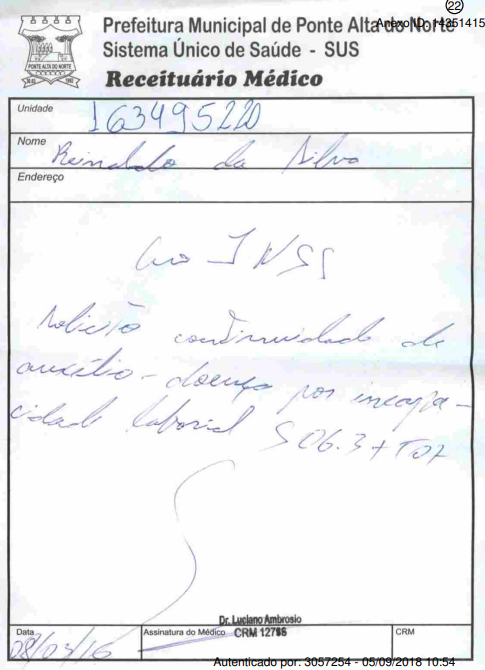 22
Anexo ID: 14351415
Prefeitura Municipal de Ponte Alta do Norte
Sistema Único de Saúde - SUS
Receituário Médico
PONTE ALTA DO NORTE
Unidade
163495220
Nome
Reinaldo da Silva
Endereço
Ao INSS
Solicito continuidade de
auxílio-doença por incapa-
cidade laboral S06.3 + T07
Dr. Luciano Ambrosio
Data
Assinatura do Médico
CRM 12786
CRM
08/03/16
Autenticado por: 3057254 - 05/09/2018 10:54